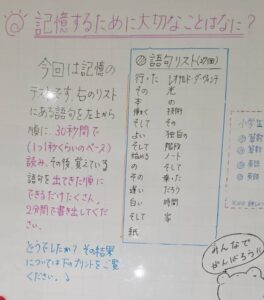 記憶するために大切なことはなに?
今回は記憶の
テストです。右のリスト
にある語句を左上から
順に、30秒間で
(1つ1秒くらいのペース)
読み、その後、覚えている
語句を出てきた順に
できるだけたくさん、
2分間で書き出してくだ
さい。
どうでしたか?その結果
については下のプリントをご覧
ください。
語句リスト(30個)
行った レオナルド・ダ・ヴィンチ
その 光
本 の
働く 技術
そして その
よい 独自の
そして 階段
始める ノート
の そして
その 乗った
違い だろう
白い 時間
そして 家
紙
小学生
算数
算数
英語
英語
みんなで
がんばろう!!